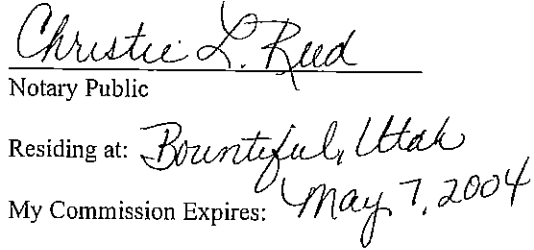 Christie L. Reed
Notary Public
Residing at: Bountiful, Utah
My Commission Expires: May 7, 2004